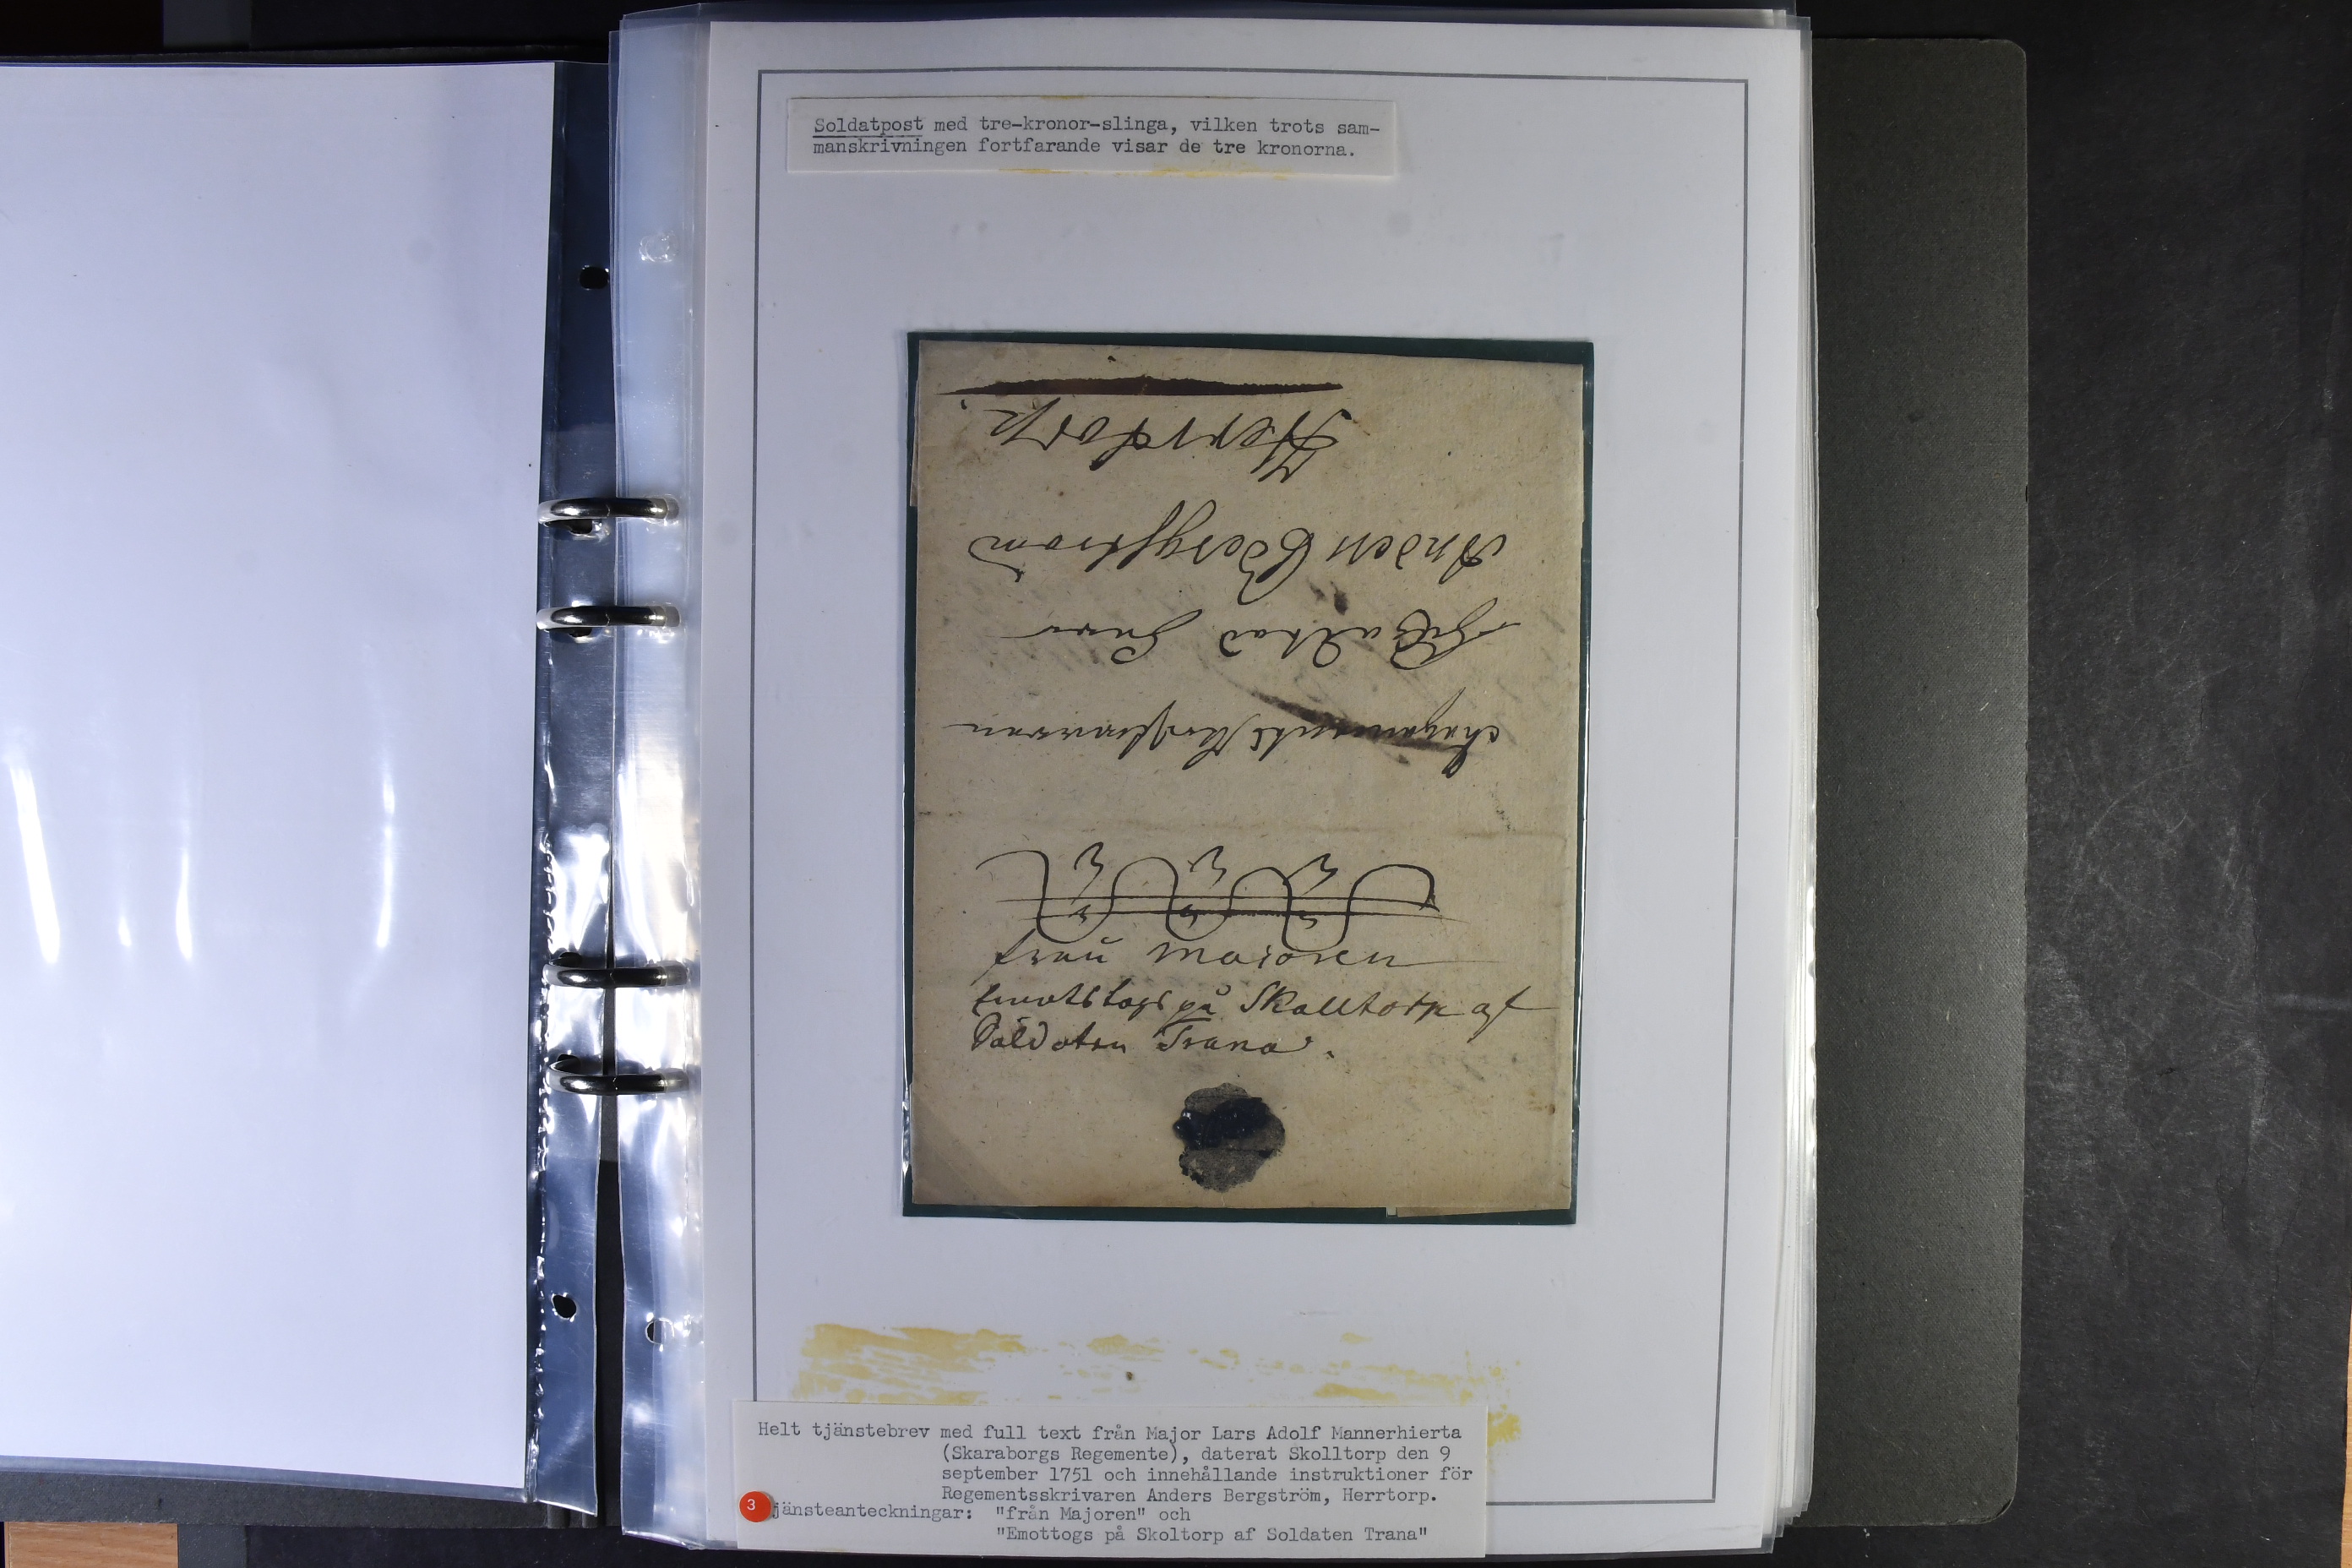 Soldatpost med tre-kronor-slinga, vilken trots sam-
manskrivningen fortfarande visar de tre kronorna.
Herrtorp.
Anders Bergström
Herr
från Majoren
Emottogs på Skolltorp af
Soldaten Trana.
Helt tjänstebrev med full text från Major Lars Adolf Mannerhierta
(Skaraborgs Regemente), daterat Skolltorp den 9
september 1751 och innehållande instruktioner för
Regementsskrivaren Anders Bergström, Herrtorp.
3
jänsteanteckningar: "från Majoren" och
"Emottogs på Skoltorp af Soldaten Trana"